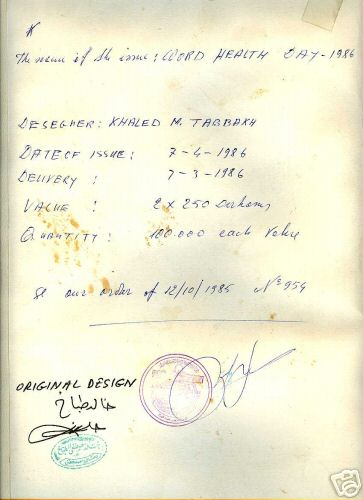 The name of the issue: WORD HEALTH DAY-1986
DESEGNER: KHALED M. TABBAKH
DATE OF ISSUE: 7-4-1986
DELIVERY : 7-3-1986
VALUE : 2 x 250 Dirhams
QUANTITY: 100.000 each Value
our order of 12/10/1985 N° 954
ORIGINAL DESIGN
خالد طباخ